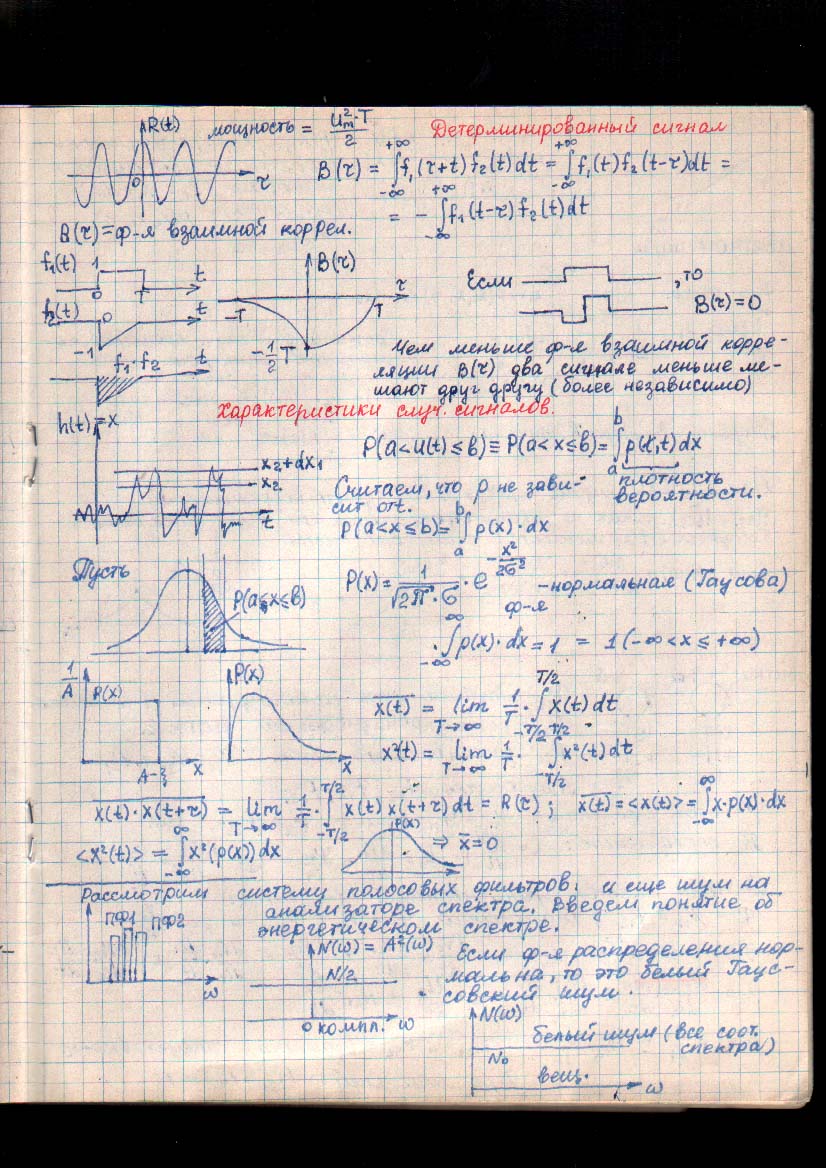 R(t) мощность = Um²·T/2 Детерминированный сигнал
0 τ B(τ) = ∫_{-∞}^{+∞} f₁(τ+t) f₂(t) dt = ∫_{-∞}^{+∞} f₁(t) f₂(t-τ) dt =
= -∫_{-∞}^{+∞} f₁(t-τ) f₂(t) dt
B(τ) = ф-я взаимной коррел.
f₁(t) 1 t
0 T
f₂(t) 0 t
-1
f₁·f₂ t
B(τ) τ
-T T
-1/2 T
Если , то
B(τ) = 0
Чем меньше ф-я взаимной корре-
ляции B(τ) два сигнале меньше ме-
шают друг другу (более независимо)
Характеристики случ. сигналов.
h(t) = x
x₂+dx₁
x₂
t
P(a < U(t) ≤ b) ≡ P(a < x ≤ b) = ∫_a^b p(x,t) dx
Считаем, что p не зави-
сит от t.
плотность
вероятности.
P(a < x ≤ b) = ∫_a^b p(x)·dx
Пусть
P(a ≤ x ≤ b)
P(x) = 1/(√2π·σ) · e^{-x²/2σ²} - нормальная (Гаусова)
ф-я
∫_{-∞}^{∞} p(x)·dx = 1 = 1 (-∞ < x ≤ +∞)
1/A P(x) x
P(x) x
x̅(̅t̅)̅ = lim_{T→∞} 1/T · ∫_{-T/2}^{T/2} x(t) dt
x²(t) = lim_{T→∞} 1/T · ∫_{-T/2}^{T/2} x²(t) dt
x̅(̅t̅)̅·̅x̅(̅t̅+̅τ̅)̅ = lim_{T→∞} 1/T · ∫_{-T/2}^{T/2} x(t) x(t+τ) dt = R(τ); x̅(̅t̅)̅ = <x(t)> = ∫_{-∞}^{∞} x·p(x)·dx
<x²(t)> = ∫_{-∞}^{∞} x²(p(x)) dx
P(x) ⇒ x̅ = 0
Рассмотрим систему полосовых фильтров. и еще шум на
анализаторе спектра. Введем понятие об
энергетическом спектре.
ПФ1 ПФ2
ω
N(ω) = A²(ω)
N/2
0 компл. ω
Если ф-я распределения нор-
мальна, то это белый Гаус-
совский шум.
N(ω)
белый шум (все сост.
спектра)
N₀
вещ.
ω